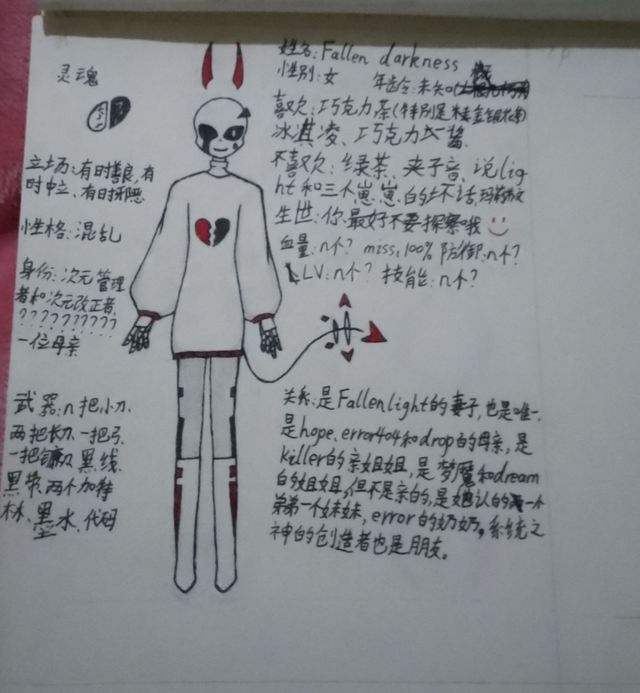 姓名:Fallen darkness
性别:女 年龄:未知
喜欢:巧克力茶(特别是
冰淇凌、巧克力酱
不喜欢:绿茶、夹子音、说lig
ht和三个崽崽的坏话,玛丽苏文
生世:你最好不要探察哦
血量:n个? miss,100% 防御:n个?
LV:n个? 技能:n个?
灵魂
立场:有时善良,有
时中立、有时邪恶
性格:混乱
身份:次元管理
者和次元改正者,
??????????
一位母亲
武器:n把小刀
两把长刀、一把弓、
一把镰刀、黑线、
黑带、两个加特
林、墨水、代码
关系:是Fallenlight的妻子,也是唯一,
是hope、error404和drop的母亲,是
killer的亲姐姐,是梦魔和dream
的姐姐,但不是亲的,是她认的一个
弟弟一个妹妹,error的奶奶。系统之
神的创造者也是朋友。